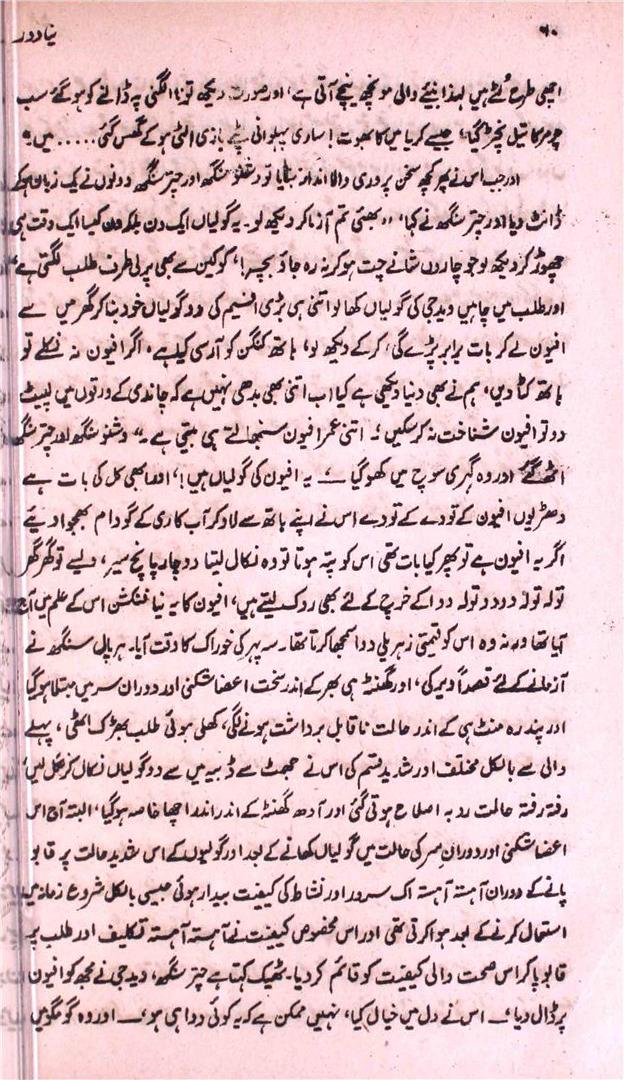 ۶۰ نیا دور
اچھی طرح لُٹے ہیں لہٰذا نیئے والی مونچھ نیچے آتی ہے، اور صورت دیکھ تو نا الگنی پہ ڈالنے کو ہو گئے سب
چومر کا تیل نچڑ گیا، جیسے کریا میں کا بھوت! ساری پہلوانی پٹے بازی الٹی ہو کے گھس گئی ..... میں"
اور جب اس نے پھر کچھ سخن پروری والا انداز بنایا تو وشنو سنگھ اور چتر سنگھ دونوں نے یک زبان ہو کے
ڈانٹ دیا اور چتر سنگھ نے کہا، "بھئی تم آزما کر دیکھ لو۔ یہ گولیاں ایک دن بلکہ دن کیسا ایک وقت ہی
چھوڑ کر دیکھ لو جو چاروں شانے چت ہو کر نہ رہ جاؤ بچہ!، کوکین سے بھی پرلی طرف طلب لگتی ہے
اور طلب میں چاہیں ویدجی کی گولیاں کھا لو اتنی ہی بڑی افیم کی دو گولیاں خود بنا کر گھر میں سے
افیون لے کر بات برابر پڑے گی، کر کے دیکھ لو، ہاتھ کنگن کو آرسی کیا ہے، اگر افیون نہ نکلے تو
ہاتھ کٹا دیں، ہم نے بھی دنیا دیکھی ہے کیا اب اتنی بھی بدھی نہیں ہے کہ چاندی کے ورقوں میں لپیٹ
دو تو افیون شناخت نہ کر سکیں، اتنی عمر افیون سنبھالتے ہی بیتی ہے۔" وشنو سنگھ اور چتر سنگھ
اٹھ گئے اور وہ گہری سوچ میں کھو گیا ــ یہ افیون کی گولیاں ہیں!، اور ابھی کل کی بات ہے
دھڑیوں افیون کے تودے کے تودے اس نے اپنے ہاتھ سے لاد کر آب کاری کے گودام بھجوا دیئے
اگر یہ افیون ہے تو پھر کیا بات تھی اس کو پتہ ہوتا تو وہ نکال لیتا دو چار پانچ سیر، ویسے تو گھر گھر
تولہ تولہ دو دو تولہ دوا کے خرچ کے لئے بھی روک لیتے ہیں، افیون کا یہ نیا فنکشن اس کے علم میں آج
آیا تھا ورنہ وہ اس کو قیمتی زہریلی دوا سمجھا کرتا تھا۔ سہ پہر کی خوراک کا وقت آیا۔ ہرپال سنگھ نے
آزمانے کے لئے قصداً دیر کی، اور گھنٹہ ہی بھر کے اندر سخت اعضا شکنی اور دوران سر میں مبتلا ہو گیا
اور پندرہ منٹ ہی کے اندر حالت ناقابل برداشت ہونے لگی، کھلی ہوئی طلب بھڑک اٹھی، پہلے
والی سے بالکل مختلف اور شدید قسم کی اس نے جھٹ سے ڈبیہ میں سے دو گولیاں نکال کر نگل لیں،
رفتہ رفتہ حالت رو بہ اصلاح ہوتی گئی اور آدھ گھنٹہ کے اندر اندر اچھا خاصہ ہو گیا، البتہ آج اس
اعضا شکنی اور دوران سر کی حالت میں گولیاں کھانے کے بعد اور گولیوں کے اس شدید حالت پر قابو
پانے کے دوران آہستہ آہستہ اک سرور اور نشاط کی کیفیت بیدار ہوئی جیسی بالکل شروع زمانہ میں
استعمال کرنے کے بعد ہوا کرتی تھی اور اس مخصوص کیفیت نے آہستہ آہستہ تکلیف اور طلب پر
قابو پا کر اس صحت والی کیفیت کو قائم کر دیا۔ ٹھیک کہتا ہے چتر سنگھ، ویدجی نے مجھ کو افیون
پر ڈال دیا، اس نے دل میں خیال کیا، نہیں ممکن ہے کہ یہ کوئی دوا ہی ہو ــ اور وہ گومگو میں